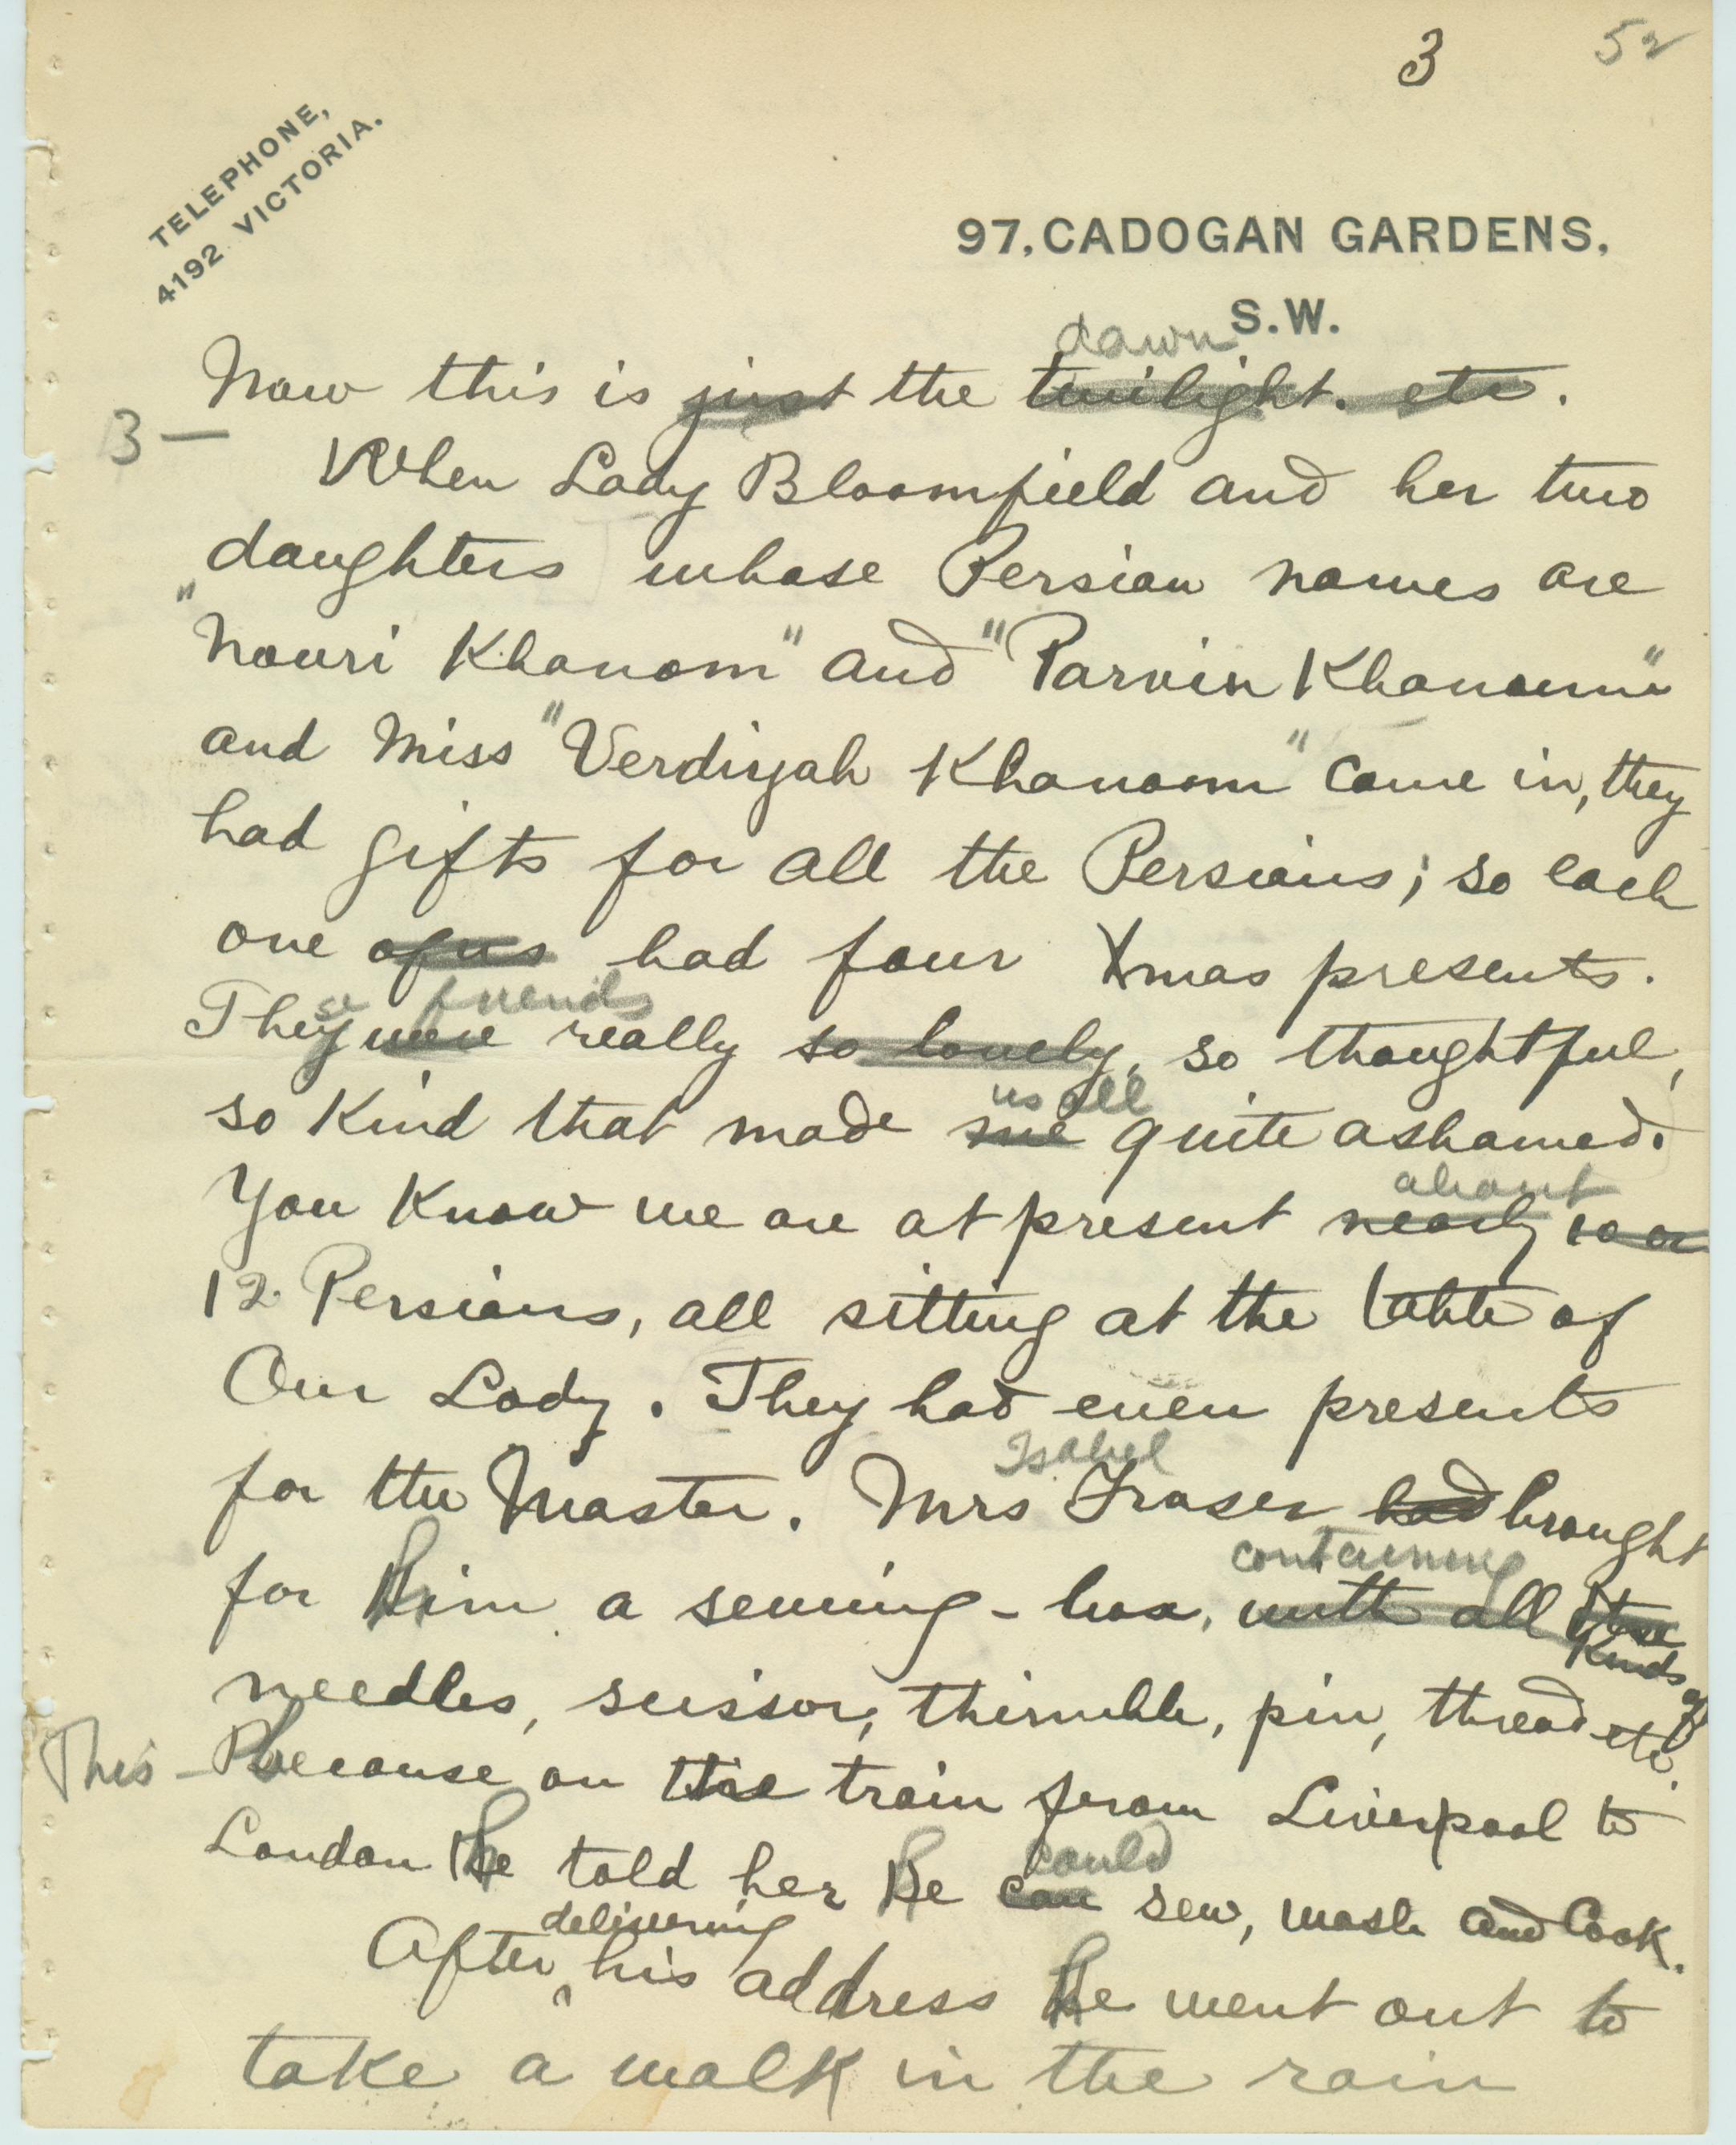 3 52
TELEPHONE,
4192 VICTORIA.
97, CADOGAN GARDENS,
S.W.
dawn
Now this is just the twilight. etc.
3 —
When Lady Bloomfield and her two
daughters whose Persian names are
"Nouri Khanom" and "Parvin Khanoum"
and Miss "Verdiyah Khanoom" came in, they
had gifts for all the Persians; so each
one of us had four Xmas presents.
se friends
They were really so lovely, so thoughtful,
us all
so kind that made me quite ashamed.
about
You know we are at present nearly 10 or
12 Persians, all sitting at the table of
Our Lady. They had even presents
Isabel
for the Master. Mrs Fraser had brought
containing
for Him a sewing-box, with all the
kinds of
needles, scissor, thimble, pin, thread etc.
This - Because on the train from Liverpool to
could
London He told her He can sew, wash and Cook.
delivering
After ^ his address He went out to
take a walk in the rain